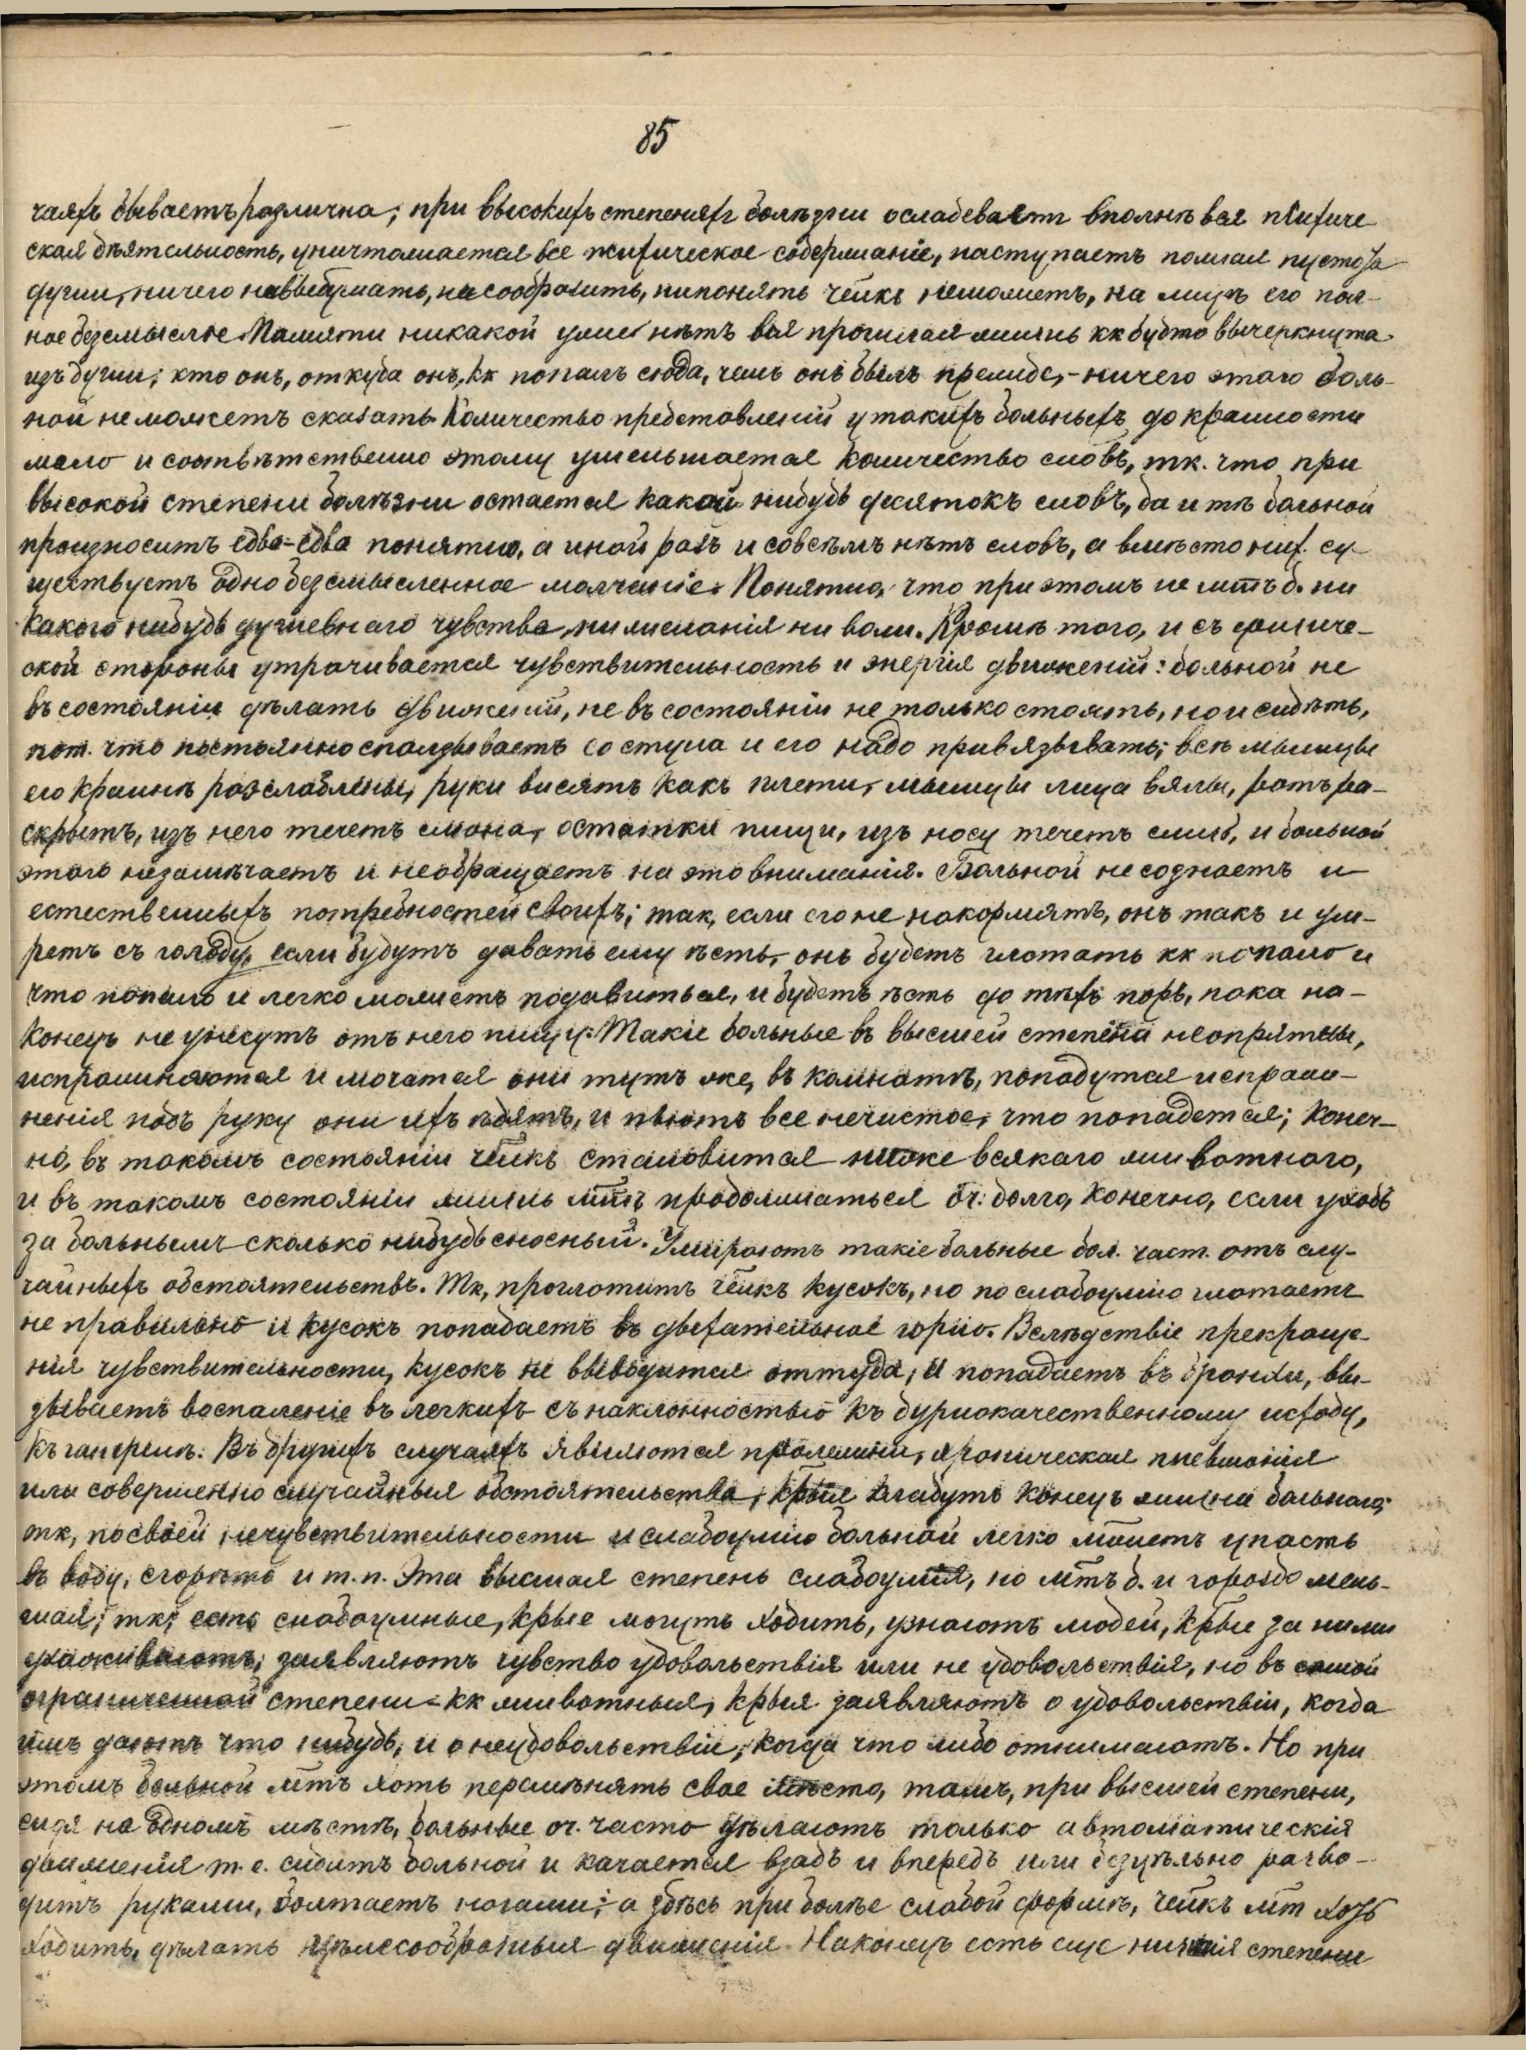 85
чаяхъ бываетъ различна; при высокихъ степеняхъ болѣзни ослабеваетъ вполнѣ вся психиче-
ская дѣятельность, уничтожается все психическое содержаніе, наступаетъ полная пустота
души, ничего не выдумать, не сообразить, ни понять чѣлкъ не можетъ, на лицѣ его пол-
ное безсмысліе. Памяти никакой уже нѣтъ вся прошлая жизнь кк будто вычеркнута
изъ души; кто онъ, откуда онъ, кк попалъ сюда, чемъ онъ былъ прежде, - ничего этого боль-
ной не можетъ сказать. Количество представленій у такихъ больныхъ до крайности
мало и соотвѣтственно этому уменьшается количество словъ, тк. что при
высокой степени болѣзни остается какой нибудь десятокъ словъ, да и тѣ больной
произноситъ едва-едва понятно, а иной разъ и совсѣмъ нѣтъ словъ, а вмѣсто них. су-
ществуетъ одно безсмысленное молчаніе. Понятно, что при этомъ не мтъ б. ни
какого нибудь душевнаго чувства, ни желанія ни воли. Кромѣ того, и съ физиче-
ской стороны утрачивается чувствительность и энергія движеній: больной не
въ состояніи дѣлать движеній, не въ состояніи не только стоять, но и сидѣть,
пот. что постоянно сползываетъ со стула и его надо привязывать; всѣ мышцы
его крайнѣ разслаблены, руки висятъ какъ плети, мышцы лица вялы, ротъ ра-
скрытъ, изъ него течетъ слюна, остатки пищи, изъ носу течетъ слизь, и больной
этого незамѣчаетъ и необращаетъ на это вниманія. Больной не сознаетъ и
естественныхъ потребностей своихъ; так, если его не накормятъ, онъ такъ и ум-
ретъ съ голоду, если будутъ давать ему ѣсть, онъ будетъ глотать кк попало и
что попало и легко можетъ подавиться, и будетъ ѣсть до тѣхъ поръ, пока на-
конецъ не унесутъ отъ него пищу. Такіе больные въ высшей степени неопрятны,
испражняются и мочатся они тутъ же, въ комнатѣ, попадутся испраж-
ненія подъ руку они ихъ ѣдятъ, и пьютъ все нечистое, что попадется; конеч-
но, въ такомъ состояніи чѣлкъ становится ниже всякаго животнаго,
и въ такомъ состояніи жизнь мтъ продолжаться оч. долго, конечно, если уходъ
за больнымъ сколько нибудь сносный. Умираютъ такіе больные бол. част. отъ слу-
чайныхъ обстоятельствъ. Тк, проглотитъ чѣлкъ кусокъ, но по слабоумію глотаетъ
не правильно и кусокъ попадаетъ въ дыхательное горло. Вслѣдствіе прекраще-
нія чувствительности, кусокъ не выводится оттуда, и попадаетъ въ бронхи, вы-
зываетъ воспаленіе въ легкихъ съ наклонностью къ дурнокачественному исходу,
къ гангренѣ. Въ другихъ случаяхъ являются пролежни, хроническая пневмонія
или совершенно случайныя обстоятельства, крыя кладутъ конецъ жизни больного;
тк, по своей нечувствительности и слабоумію больной легко можетъ упасть
въ воду, сгорѣть и т. п. Эта высшая степень слабоумія, но мтъ б. и гораздо мень-
шая; тк, есть слабоумные, крые могутъ ходить, узнаютъ людей, крые за ними
ухаживаютъ; заявляютъ чувство удовольствія или не удовольствія, но въ самой
ограниченной степени - кк животныя, крыя заявляютъ о удовольствіи, когда
имъ даютъ что нибудь, и о неудовольствіи, когда что либо отнимаютъ. Но при
этомъ больной мтъ хоть перемѣнять свое мѣсто, тамъ, при высшей степени,
сидя на одномъ мѣстѣ, больные оч. часто дѣлаютъ только автоматическія
движенія т. е. сидитъ больной и качается взадъ и впередъ или безцѣльно разво-
дитъ руками, болтаетъ ногами; а здѣсь при болѣе слабой формѣ, чѣлкъ мтъ хоть
ходить, дѣлать цѣлесообразныя движенія. Наконецъ есть еще низшія степени